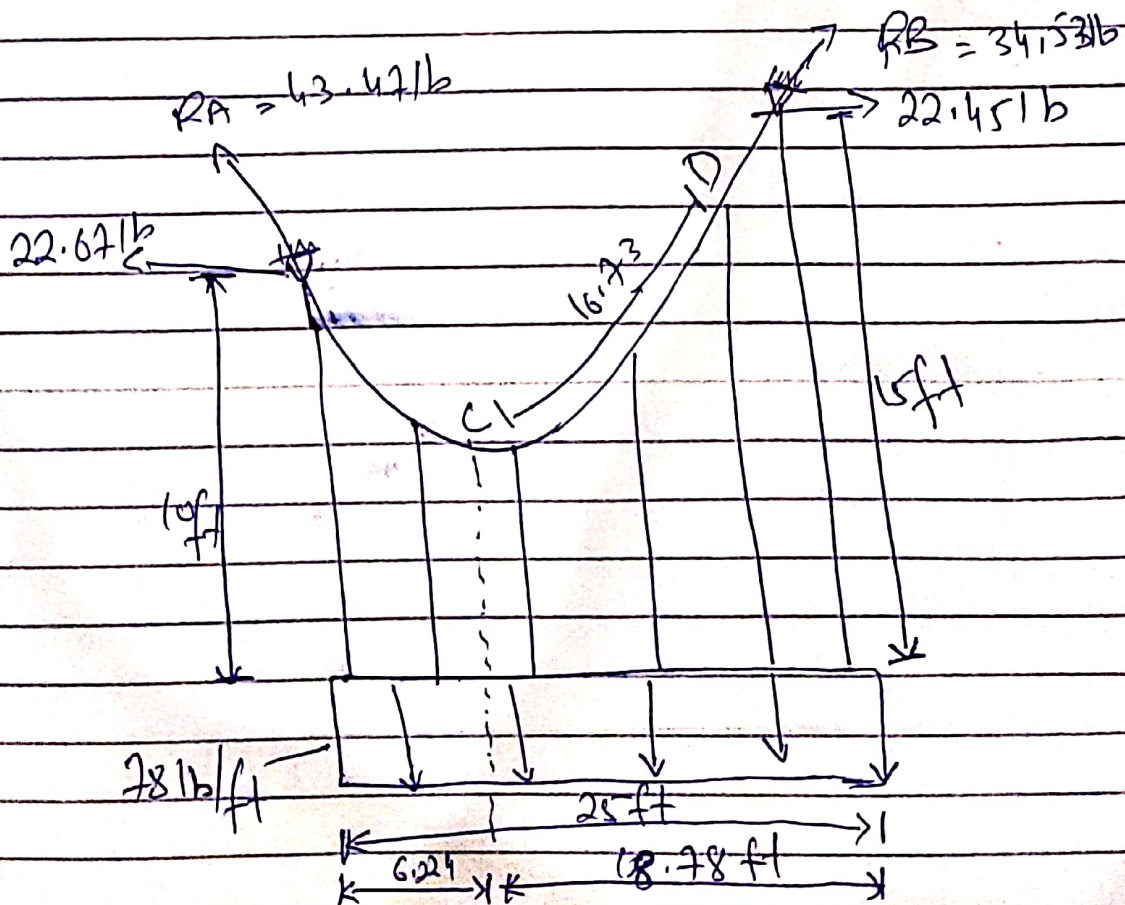 RB = 34.53lb
RA = 43.47lb
22.45lb
22.67lb
D
16.73
C
15ft
10ft
78lb/ft
25ft
6.224
18.78ft